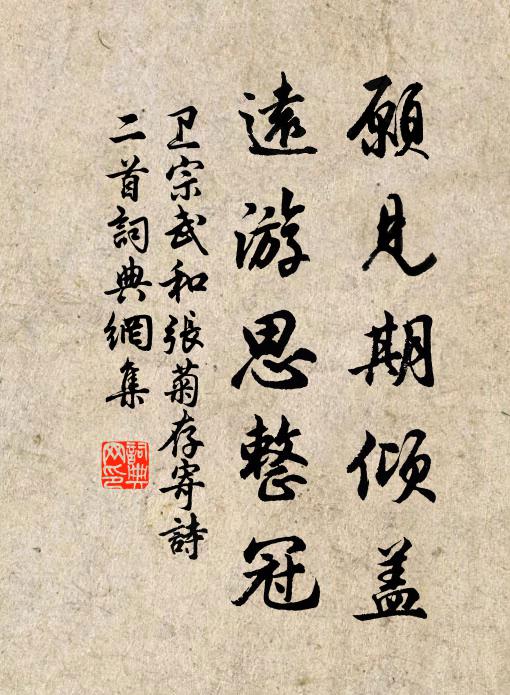 願见期倾盖
遠游思整冠
卫宗武和張菊存寄詩
二首詞典網集
詞典网印